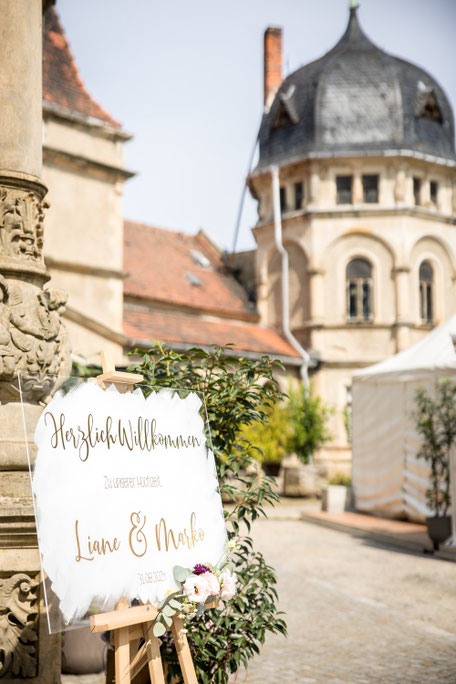 Herzlich Willkommen
Zu unserer Hochzeit
Liane & Marko
31.08.2024